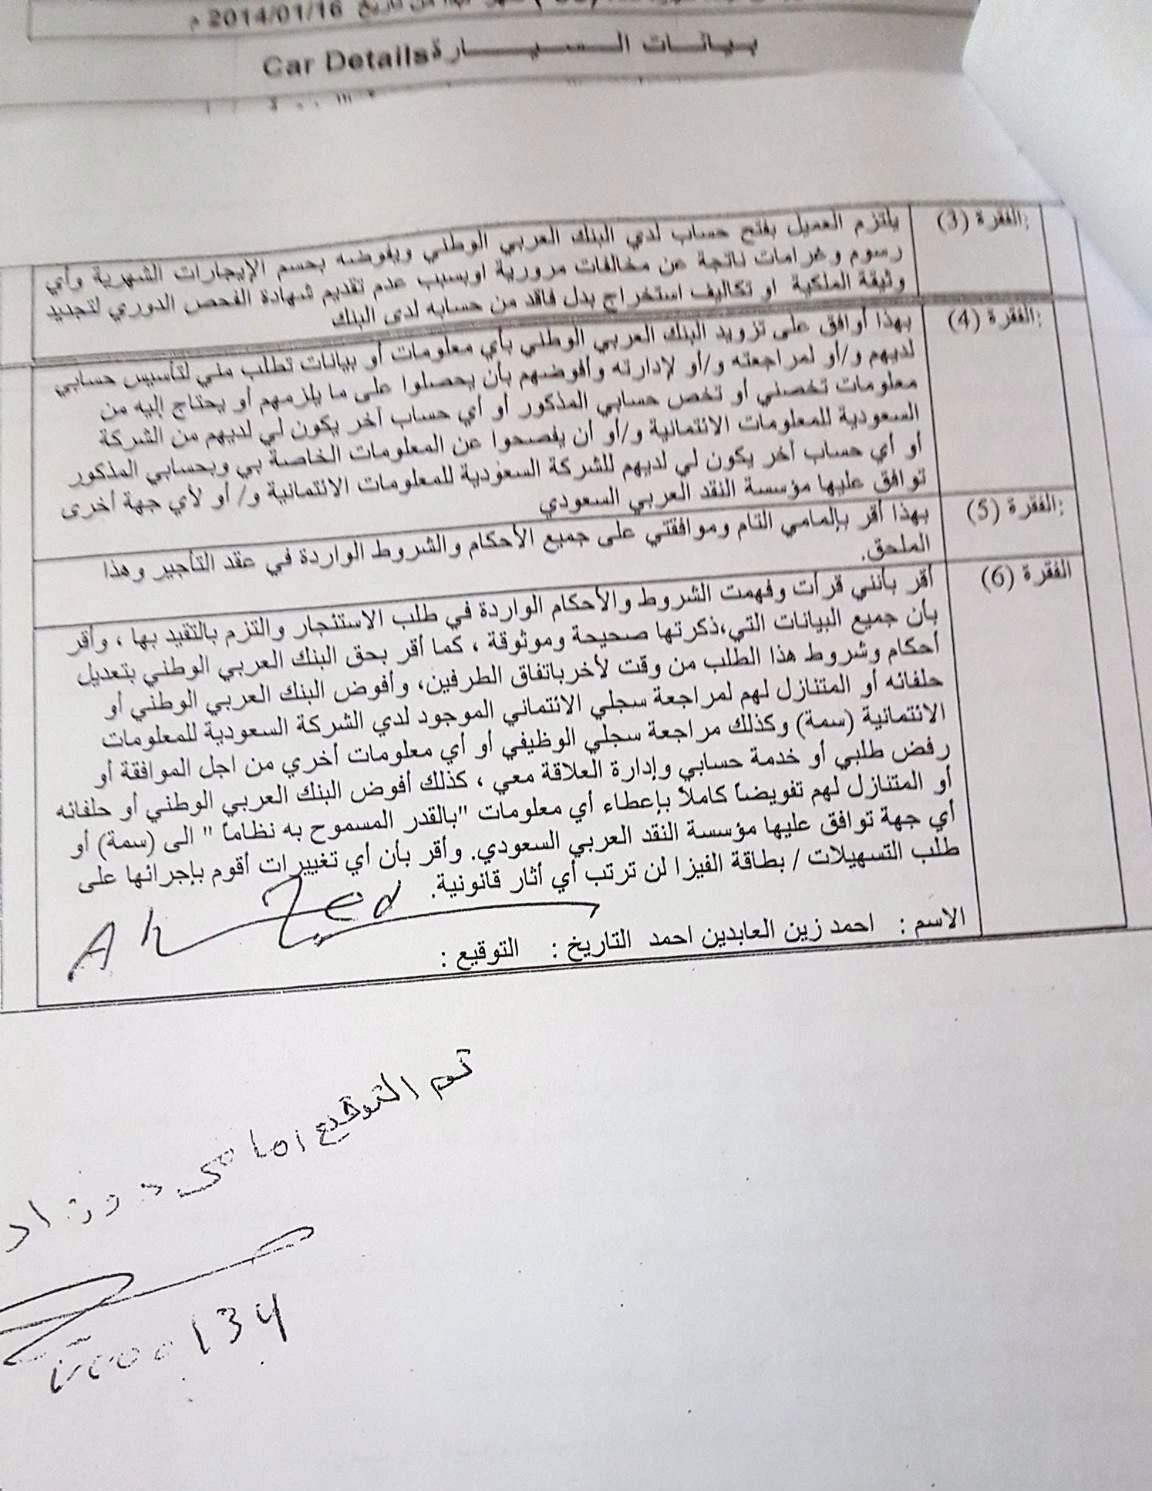 من تاريخ 2014/01/16 م
بيانات السيارة Car Details
الفقرة (3):
يلتزم العميل بفتح حساب لدي البنك العربي الوطني ويفوضه بحسم الإيجارات الشهرية وأي
رسوم وغرامات ناتجة عن مخالفات مرورية اوبسبب عدم تقديم شهادة الفحص الدوري لتجديد
وثيقة الملكية او تكاليف استخراج بدل فاقد من حسابه لدى البنك
الفقرة (4):
بهذا أوافق على تزويد البنك العربي الوطني بأي معلومات أو بيانات تطلب مني لتأسيس حسابي
لديهم و/أو لمراجعته و/أو لإدارته وأفوضهم بأن يحصلوا على ما يلزمهم أو يحتاج إليه من
معلومات تخصني أو تخص حسابي المذكور أو أي حساب آخر يكون لي لديهم من الشركة
السعودية للمعلومات الائتمانية و/أو أن يفصحوا عن المعلومات الخاصة بي وبحسابي المذكور
أو أي حساب أخر يكون لي لديهم للشركة السعودية للمعلومات الائتمانية و/ أو لأي جهة أخرى
توافق عليها مؤسسة النقد العربي السعودي
الفقرة (5):
بهذا أقر بإلمامي التام وموافقتي على جميع الأحكام والشروط الواردة في عقد التأجير وهذا
الملحق.
الفقرة (6)
أقر بأنني قرأت وفهمت الشروط والأحكام الواردة في طلب الاستئجار والتزم بالتقيد بها ، وأقر
بأن جميع البيانات التي،ذكرتها صحيحة وموثوقة ، كما أقر بحق البنك العربي الوطني بتعديل
أحكام وشروط هذا الطلب من وقت لأخرباتفاق الطرفين، وأفوض البنك العربي الوطني أو
حلفائه أو المتنازل لهم لمراجعة سجلي الائتماني الموجود لدي الشركة السعودية للمعلومات
الائتمانية (سمة) وكذلك مراجعة سجلي الوظيفي أو أي معلومات أخري من اجل الموافقة أو
رفض طلبي أو خدمة حسابي وإدارة العلاقة معي ، كذلك أفوض البنك العربي الوطني أو حلفائه
أو المتنازل لهم تفويضاً كاملاً بإعطاء أي معلومات "بالقدر المسموح به نظاماً " الى (سمة) أو
أي جهة توافق عليها مؤسسة النقد العربي السعودي. وأقر بأن أي تغييرات أقوم بإجرائها على
طلب التسهيلات / بطاقة الفيزا لن ترتب أي أثار قانونية.
الاسم : احمد زين العابدين احمد التاريخ : التوقيع :
تم التوقيع امامي